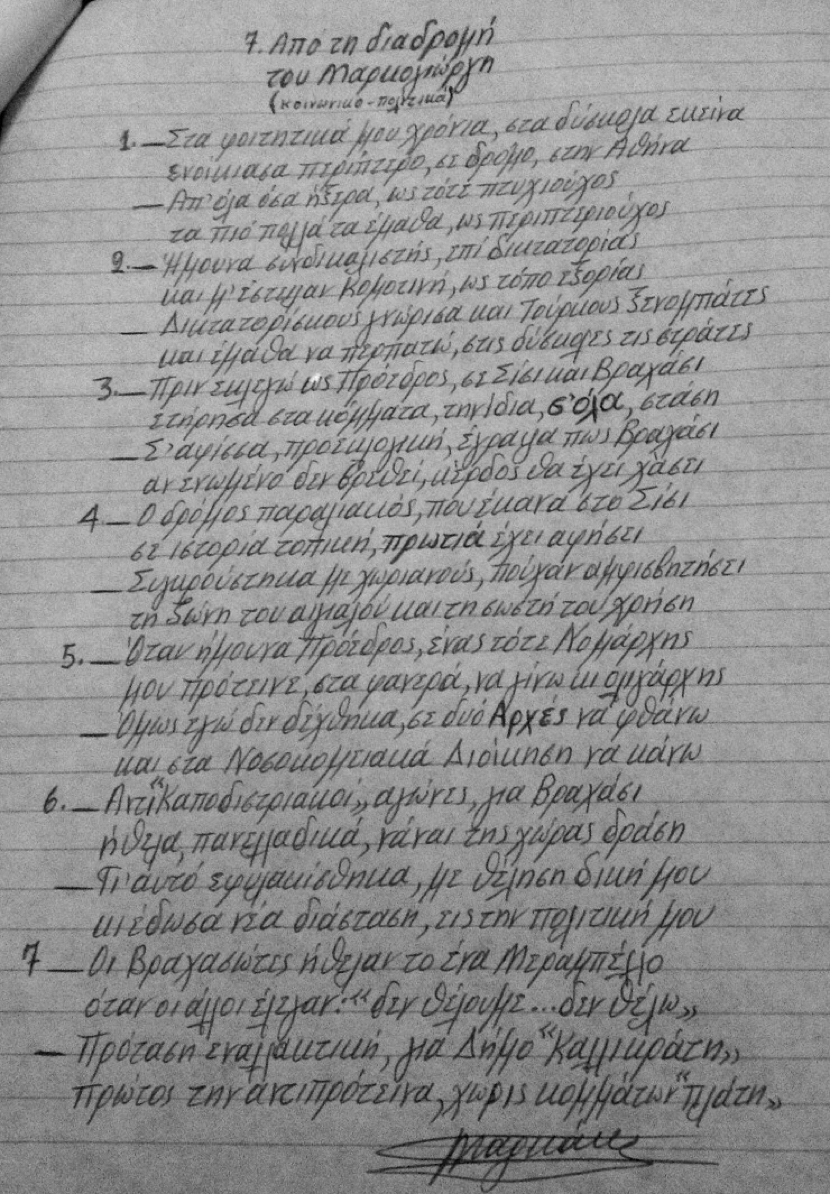 7. Από τη διαδρομή
του Μαρκογιώργη
(κοινωνικο-πολιτικά)
1. — Στα φοιτητικά μου χρόνια, στα δύσκολα εκείνα
ενοικιασα περίπτερο, σε δρόμο, στην Αθήνα
— Απ' όλα όσα ήξερα, ως τότε πτυχιούχος
τα πιο πολλά τα έμαθα, ως περιπτεριούχος
2. — Ήμουνα συνδικαλιστής, επί δικτατορίας
και μ' έστειλαν Κομοτινή, ως τόπο εξορίας
— Δικτατορίσκους γνώρισα και Τούρκους ξενομπάτες
και έμαθα να περπατώ, στις δύσκολες τις στράτες
3. — Πριν εκλεγώ ως Πρόεδρος, σε Σίσι και Βραχάσι
ετήρησα στα κόμματα, την ίδια, σ'όλα, στάση
— Σ' αφίσσα, προεκλογική, έγραψα πως Βραχάσι
αν ενωμένο δεν βρεθεί, κέρδος θα έχει χάσει
4 — Ο δρόμος παραλιακός, που έκανα στο Σίσι
σε ιστορία τοπική, πρωτιά έχει αφήσει
— Συγκρούστηκα με χωριανούς, πούχαν αμφισβητήσει
τη ζώνη του αιγιαλού και τη σωστή του χρήση
5. — Όταν ήμουνα Πρόεδρος, ένας τότε Νομάρχης
μου πρότεινε, στα φανερά, να γίνω κι ολιγάρχης
— Όμως εγώ δεν δέχθηκα, σε δυό Αρχές να φθάνω
και στα Νοσοκομειακά Διοίκηση να κάνω
6. — Αντι "Καποδιστριακοί,, αγώνες, για Βραχάσι
ήθελα, πανελλαδικά, νάναι της χώρας δράση
— Γι' αυτό εφυλακίσθηκα, με θέληση δική μου
κι έδωσα νέα διάσταση, εις την πολιτική μου
7 — Οι Βραχασιώτες ήθελαν το ένα Μεραμπέλλο
όταν οι άλλοι έλεγαν: "δεν θέλουμε... δεν θέλω,,
— Πρόταση εναλλακτική, για Δήμο "Καλλικράτη,,
πρώτος την αντιπρότεινα, χωρίς κομμάτων "πλάτη,,